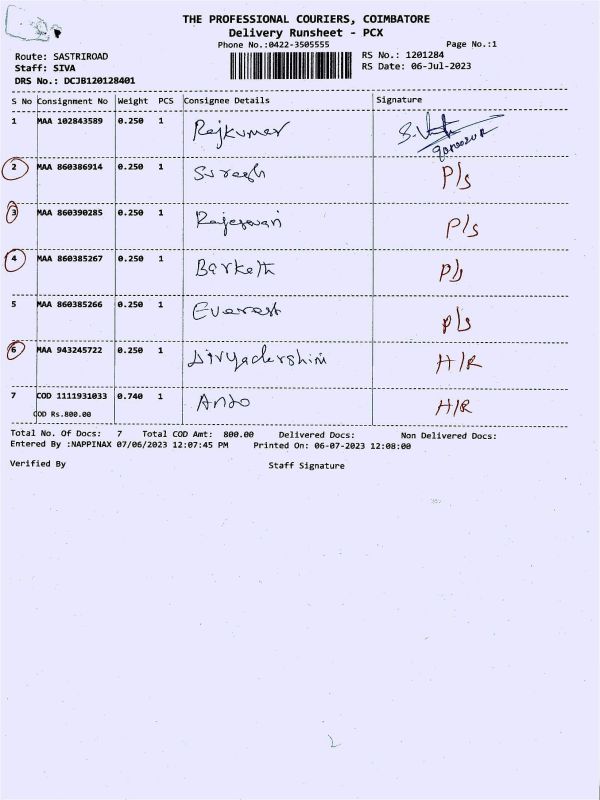 THE PROFESSIONAL COURIERS, COIMBATORE
Delivery Runsheet - PCX
Phone No.:0422-3505555 Page No.:1
Route: SASTRIROAD RS No.: 1201284
Staff: SIVA RS Date: 06-Jul-2023
DRS No.: DCJB120128401
S No Consignment No Weight PCS Consignee Details Signature
1 MAA 102843589 0.250 1 Rajkumar
2 MAA 860386914 0.250 1 Suresh P/s
3 MAA 860390285 0.250 1 Rajeswari P/s
4 MAA 860385267 0.250 1 Barketh P/s
5 MAA 860385266 0.250 1 Everest P/s
6 MAA 943245722 0.250 1 Divyadershini H/R
7 COD 1111931033 0.740 1 Anto H/R
COD Rs.800.00
Total No. Of Docs: 7 Total COD Amt: 800.00 Delivered Docs: Non Delivered Docs:
Entered By :NAPPINAX 07/06/2023 12:07:45 PM Printed On: 06-07-2023 12:08:00
Verified By Staff Signature